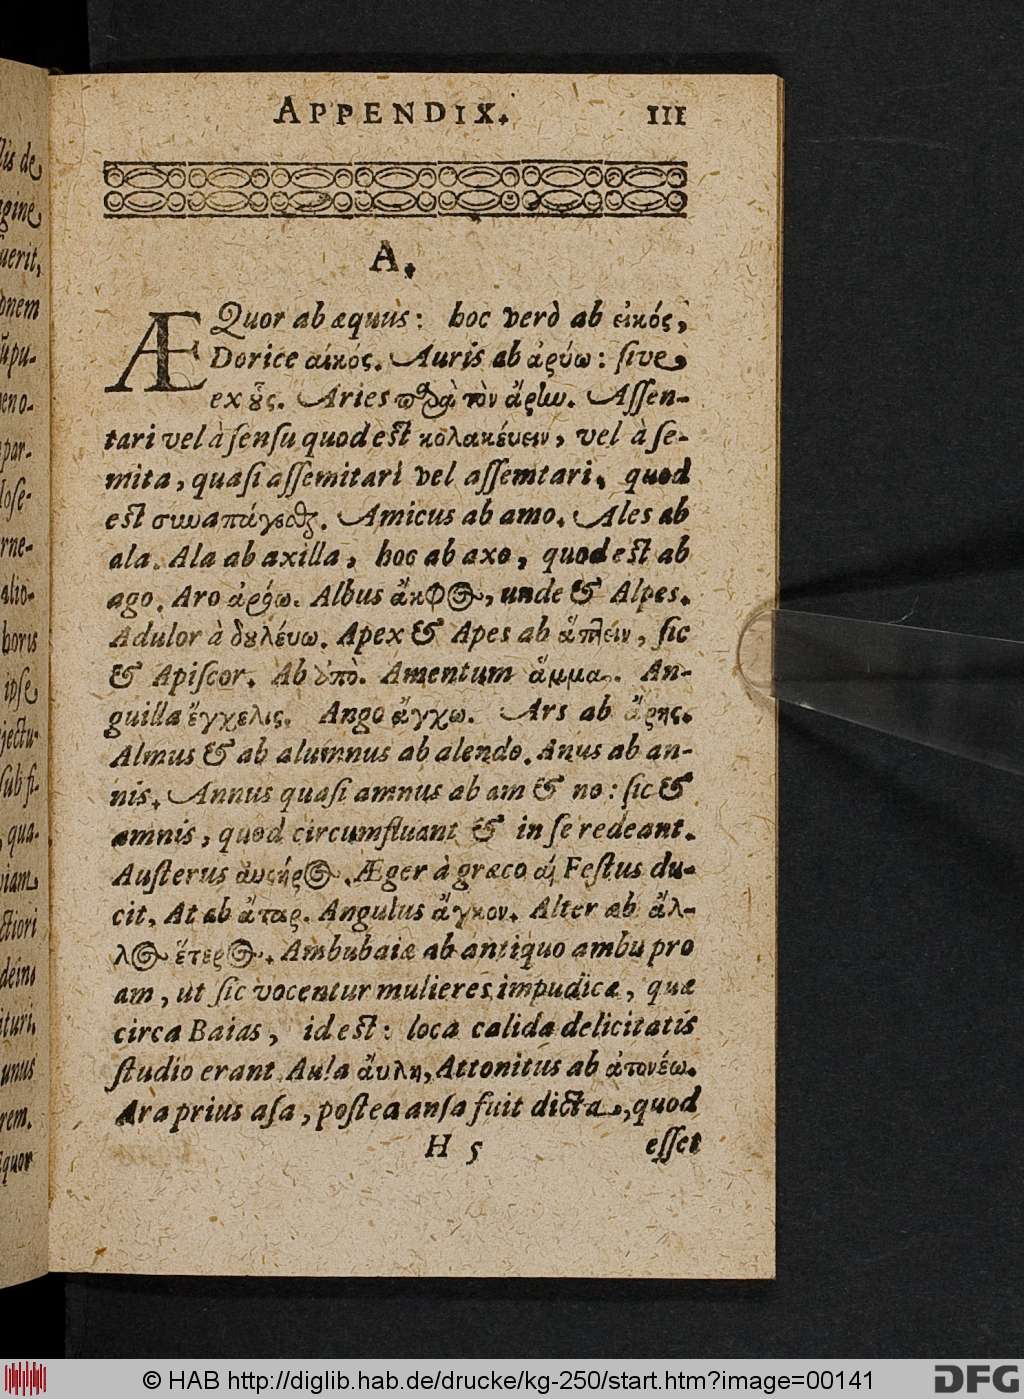 APPENDIX. 111
A.
ÆQuor ab æquus: hoc verò ab εἰκός,
Dorice αἰκός. Auris ab ἀρύω: ſive
ex ȣ̃ς. Aries παρὰ τὸν ἄρην. Aſſen-
tari vel à ſenſu quod eſt κολακέυειν, vel à ſe-
mita, quaſi aſſemitari vel aſſemtari, quod
eſt συναπάγεσθαι. Amicus ab amo. Ales ab
ala. Ala ab axilla, hoc ab axo, quod eſt ab
ago. Aro ἀρόω. Albus ἄλφος, unde & Alpes.
Adulor à δȣλέυω. Apex & Apes ab ἅπτειν, ſic
& Apiſcor. Ab ὑπὸ. Amentum ἅμμα. An-
guilla ἔγχελις. Ango ἄγχω. Ars ab ἄρης.
Almus & ab alumnus ab alendo. Anus ab an-
nis. Annus quaſi amnus ab am & no: ſic &
amnis, quod circumfluant & in ſe redeant.
Auſterus ἀυςήρος. Æger à græco αἲ Feſtus du-
cit. At ab ἄταρ. Angulus ἄγκον. Alter ab ἄλ-
λος ἕτερος. Ambubaiæ ab antiquo ambu pro
am, ut ſic vocentur mulieres impudicæ, quæ
circa Baias, id eſt: loca calida delicitatis
ſtudio erant. Aula ἄυλη, Attonitus ab ἀτονέω.
Ara prius aſa, poſtea anſa fuit dicta, quod
H 5 eſſet
lis de
gine
uerit,
onem
par-
rne-
alio-
boris
ipſe
jectu-
ſub ſi-
qua-
viam
ctiori
deino
ituri.
unus
rem.
iquor
© HAB http://diglib.hab.de/drucke/kg-250/start.htm?image=00141
DFG